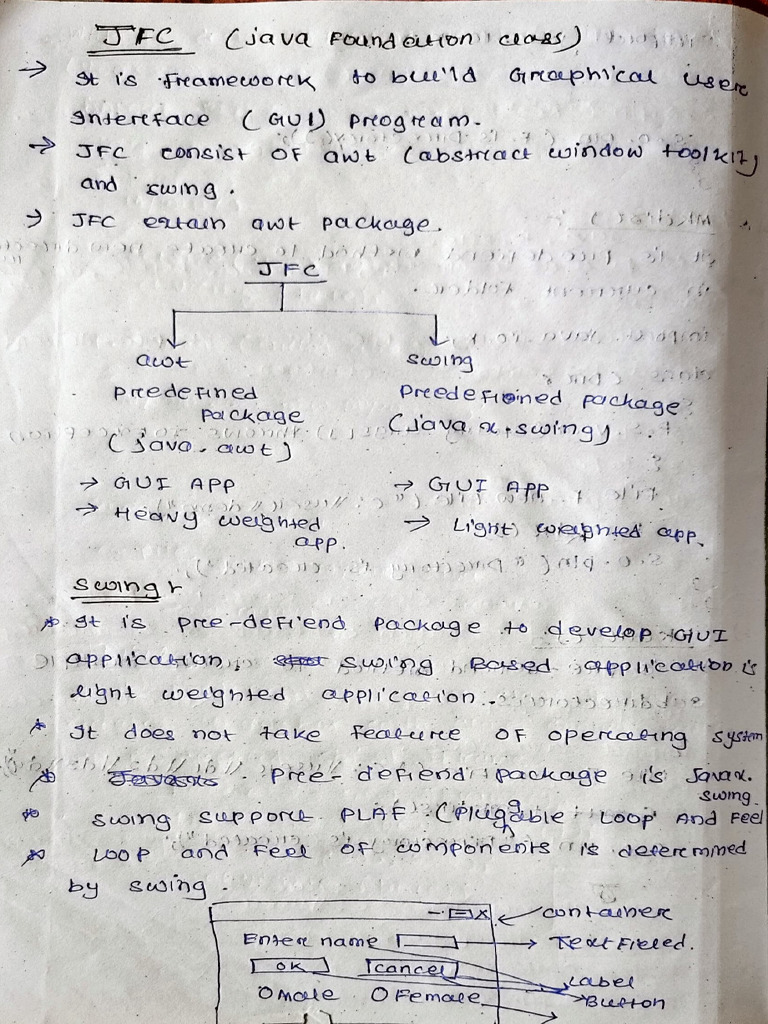 JFC (java Foundation class)
→ It is framework to build Graphical user
Interface (GUI) program.
→ JFC consist of awt (abstract window toolkit)
and swing.
→ JFC extain awt package.
JFC
awt swing
predefined Preedefined package
package (javax.swing)
(java.awt)
→ GUI APP → GUI APP
→ Heavy weighted → Light weighted app.
app.
Swing
* It is pre-defiend package to develop GUI
application. swing Based application is
light weighted application.
* It does not take feature of operating system
* pre-defiend package is Javax.
swing
* swing support PLAF (Pluggable Loop And Feel
* Loop and Feel of components is determined
by swing.
- X container
Enter name Text Fieled.
OK cancel Label
O male O Female Button